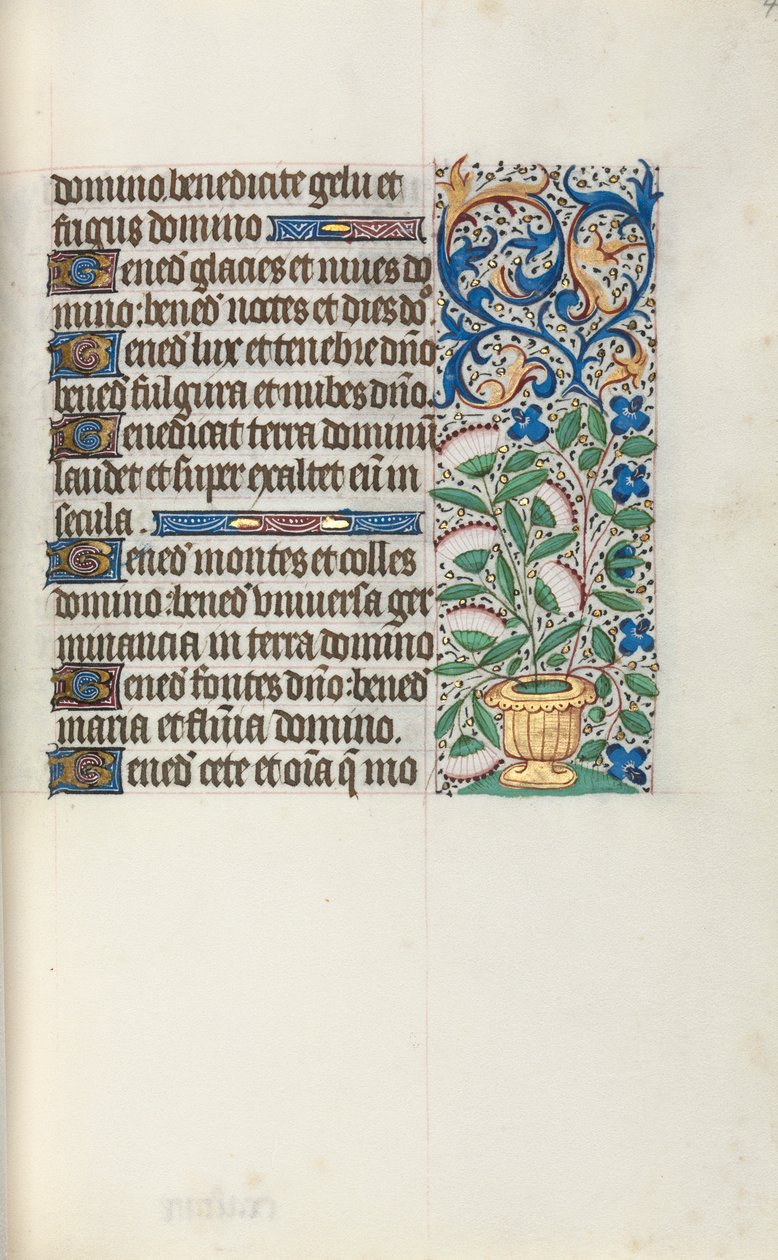 domino. benedicite gelu et
frigus domino
Bened̄ glacies et niues do
mino: bened̄ noctes et dies dn̄o
Bened̄ lux et tenebre dn̄o
bened̄ fulgura et nubes dn̄o.
Benedicat terra dominū
laudet et super exaltet eū in
secula.
Bened̄ montes et colles
domino: bened̄ vniuersa ger
minancia in terra domino
Bened̄ fontes dn̄o: bened̄
maria et flūia domino.
Bened̄ cete et oīa q̄ mo